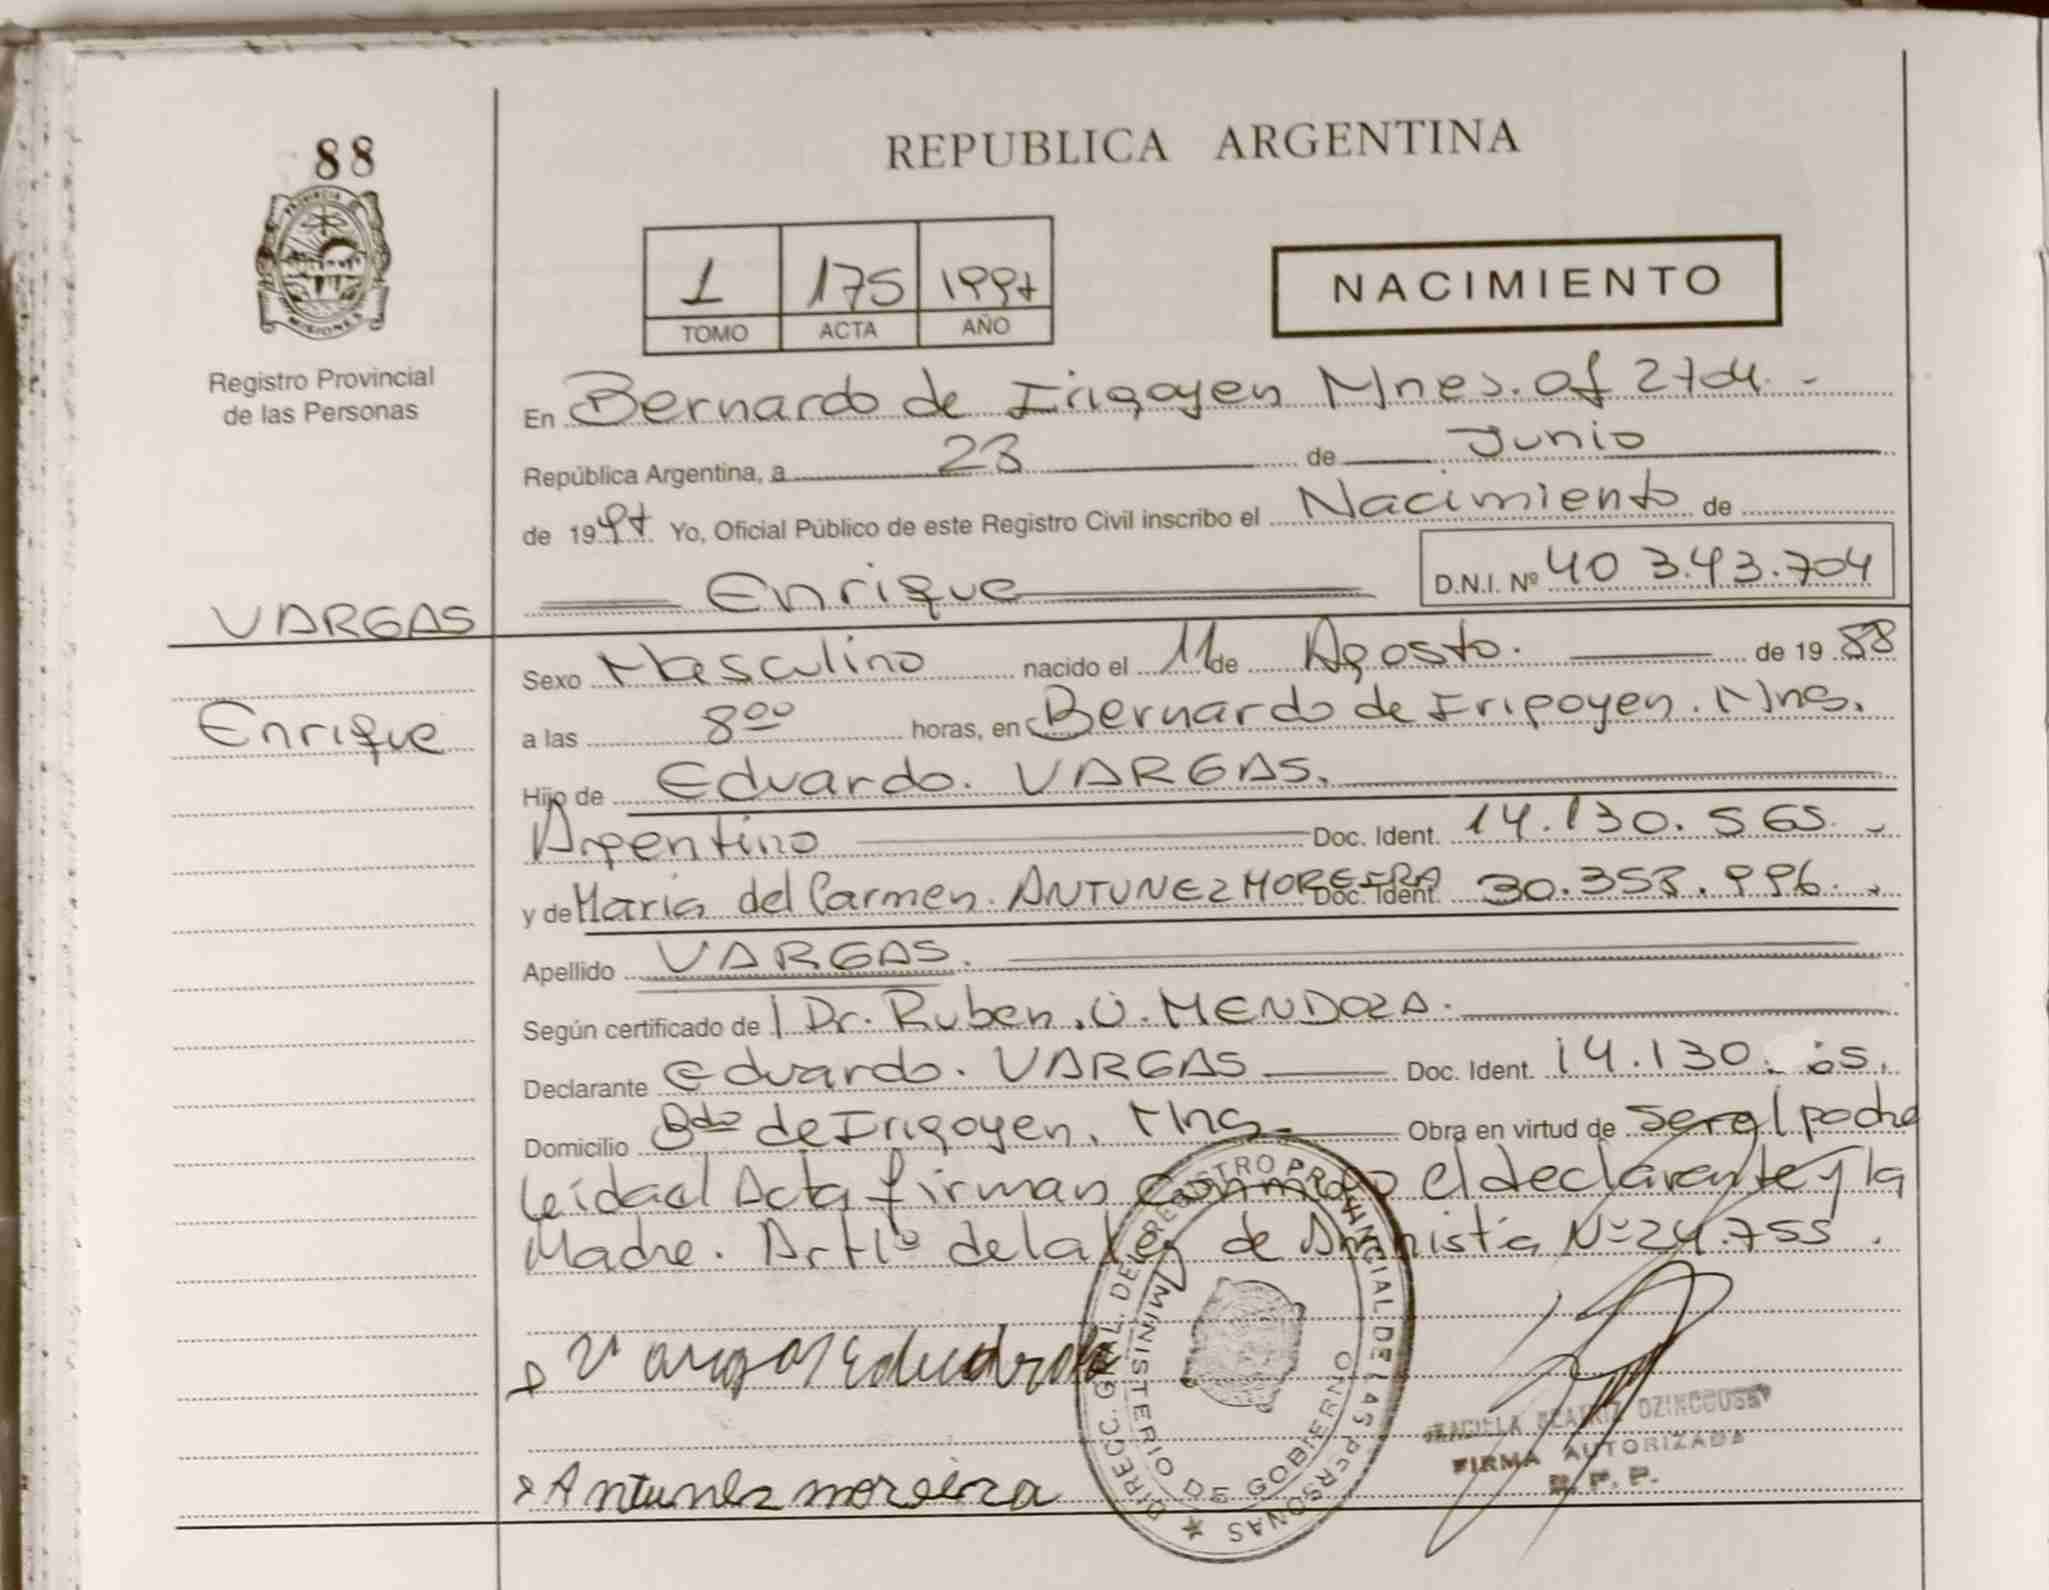 88
PROVINCIA
MISIONES
Registro Provincial
de las Personas
VARGAS
Enrique
REPUBLICA ARGENTINA
1 175 1997
TOMO ACTA AÑO
NACIMIENTO
En Bernardo de Irigoyen Mnes. of 2704. -
República Argentina, a 23 de Junio
de 1997 Yo, Oficial Público de este Registro Civil inscribo el Nacimiento de
Enrique D.N.I. Nº 40 343.704
Sexo Masculino nacido el 11 de Agosto. de 1988
a las 8⁰⁰ horas, en Bernardo de Irigoyen. Mns.
Hijo de Eduardo. VARGAS.
Argentino Doc. Ident. 14.130.565.
y de Maria del Carmen. ANTUNEZ MOREIRA Doc. Ident. 30.358.996.
Apellido VARGAS.
Según certificado de Dr. Ruben. U. MENDOZA.
Declarante Eduardo. VARGAS Doc. Ident. 14.130.
Domicilio Bdo de Irigoyen. Mns. Obra en virtud de ser el padre
leida el Acta firman conmigo el declarante y la
Madre. Art 1º de la ley de Amnistia Nº 24.755.
Vargas Eduardo
Antunez moreira
DIRECC. GRAL. DEL REGISTRO PROVINCIAL DE LAS PERSONAS
MINISTERIO DE GOBIERNO
BEATRIZ
FIRMA AUTORIZADA
R. P. P.